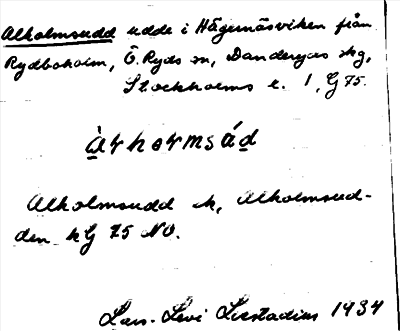 Alholmsudd udde i Hägernäsviken från
Rydboholm, Ö. Ryds sn, Danderyds hg,
Stockholms l. 1, G 75.
Alholmsudd h, Alholmsud-
den hG 75 NO.
Lars-Levi Læstadius 1934